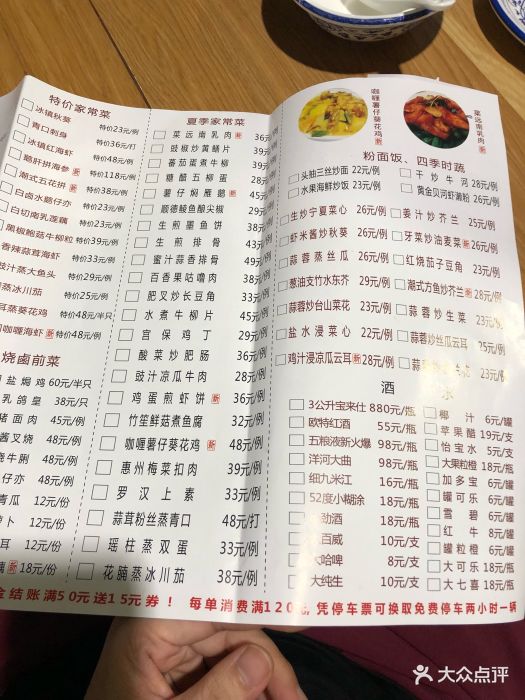 特价家常菜
冰镇秋葵 特价23元/例
青口刺身 特价36元/打
冰镇红海虾 特价48元/例
鹅肝拼海参 新 特价118元/例
潮式五花拼 新 特价38元/例
白卤水鹅仔亦 特价23元/例
白切南乳莲藕 特价23元/例
黑椒鲍菇牛柳粒 特价39元/例
香辣蒜茸海虾 特价33元/例
豉汁蒸大鱼头 特价29元/例
蒸冰川茄 特价25元/例
耳蒸葵花鸡 特价48元/半只
咖喱海虾 新 特价48元/例
烧卤前菜
盐焗鸡 60元/半只
乳鸽皇 38元/只
猪面肉 45元/例
酱叉烧 48元/例
烧牛脷 48元/例
仔亦 48元/例
青瓜 12元/份
萝卜 12元/份
耳 12元/份
藕 新 18元/份
夏季家常菜
菜远南乳肉 新 36元/例
豉椒炒黄鳝片 39元/例
番茄蒸蜜牛柳
糖醋五柳蛋 28元/例
薯仔焖雁鹅 新 48元/例
顺德鲮鱼酿尖椒 29元/例
生煎墨鱼饼 38元/例
生煎排骨 43元/例
蜜汁蒜香排骨 49元/例
百香果咕噜肉 38元/例
肥叉炒长豆角 33元/例
水煮牛柳片 45元/例
宫保鸡丁 29元/例
酸菜炒肥肠 36元/例
豉汁凉瓜牛肉 28元/例
鸡蛋煎虾饼 新 36元/例
竹笙鲜菇煮鱼腐 32元/例
咖喱薯仔葵花鸡 新 48元/例
惠州梅菜扣肉 39元/例
罗汉上素 33元/例
蒜茸粉丝蒸青口 48元/打
瑶柱蒸双蛋 33元/例
花腩蒸冰川茄 38元/例
咖喱薯仔葵花鸡 新
菜远南乳肉 新
粉面饭、四季时蔬
头抽三丝炒面 22元/例
水果海鲜炒饭 23元/例
干炒牛河 28元/例
黄金贝河虾濑粉 26元/例
生炒宁夏菜心 26元/例
虾米酱炒秋葵 26元/例
蒜蓉蒸丝瓜 26元/例
葱油支竹水东芥 29元/例
蒜蓉炒台山菜花 23元/例
盐水浸菜心 22元/例
鸡汁浸凉瓜云耳 新 28元/例
姜汁炒芥兰 25元/例
牙菜炒油麦菜 新 26元/例
红烧茄子豆角 23元/例
潮式方鱼炒芥兰 新 28元/例
蒜蓉炒生菜 23元/例
蒜蓉炒丝瓜云耳 25元/例
23元/例
酒水
3公升宝来仕 880元/瓶
欧特红酒 55元/瓶
五粮液新火爆 98元/瓶
洋河大曲 98元/瓶
细九米江 16元/瓶
52度小糊涂 18元/瓶
劲酒 18元/瓶
百威 10元/支
大哈啤 8元/支
大纯生 10元/支
椰汁 6元/罐
苹果醋 19元/支
怡宝水 5元/支
大果粒橙 18元/瓶
加多宝 6元/罐
罐可乐 6元/罐
雪碧 6元/罐
红牛 8元/罐
罐粒橙 6元/罐
大可乐 18元/瓶
大七喜 18元/瓶
金结账满50元送15元券！ 每单消费满120元，凭停车票可换取免费停车两小时一辆
大众点评